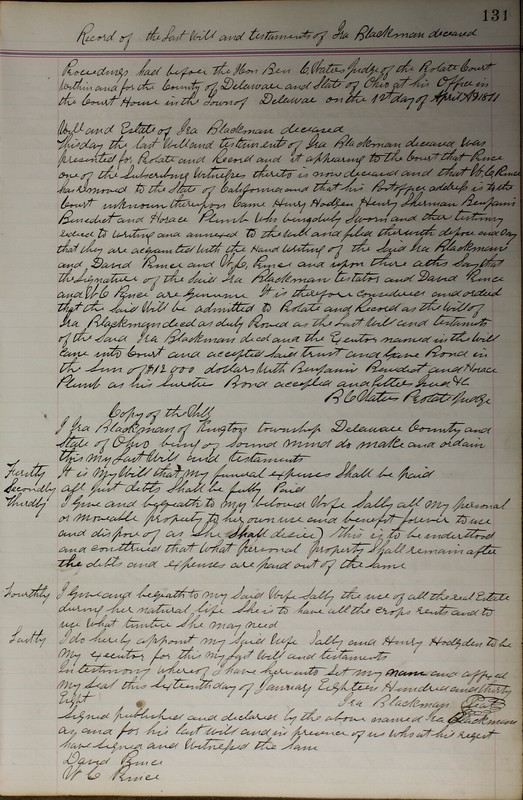 131
Record of the Last Will and testaments of Ira Blackman deceased
Proceedings had before the Hon Ben C Waters Judge of the Probate Court
within and for the County of Delaware and State of Ohio at his Office in
the Court House in the Town of Delawae on the 12th day of April AD
Will and Estate of Ira Blackman deceased
This day the last Will and testiment of Ira Blackman deceased was
presented for Probate and Record and it appearing to the Court that Prince
one of the Subscribing Witnesses thereto is now deceased and that W. C. Prince
has removed to the State of California and that his Post office address is to the
Court unknown thereupon Came Henry Hodgden Henry Sherman Benjamin
Benedict and Horace Plumb Who being duly Sworn and ther testimony
to writing and annexed to the Will and filed therewith depose and Say
that they are acquanted with the Hand Writing of the Said Ira Blackman
and David Prince and W. C. Prince and upon there oaths Say that
the Signature of the Said Ira Blackman testator and David Prince
and W C Prince are Genuine It is therefore considered and orded
that the said Will be admitted to Probate and Record as the Will of
Ira Blackman deced as duly Proved as the Last Will and testaments
of the Said Ira Blackman decd and the Executor named in the Will
Came into Court and accepted Said trust and Gave Bond in
the Sum of $12000 dollars With Benjamin Benedict and Horace
Plumb as his Sureties Bond accepted and letters Isued &c
B C Waters Probate Judge
Copy of the Will
I Ira Blackman of Kingston township Delaware County and
State of Ohio being of Sound mind do make and ordain
this my Last Will and testaments
Firstly It is my Will that my funeral expenses Shall be paid
Secondly all Just debts Shall be fully Paid
Thirdly I Give and bequeath to my beloved Wife Sally all my personal
or moveable property to her own use and benefit forever to use
and dispose of as She Shall desire) this is to be understood
and construed that What Personal Property Shall remain after
the debts and expenses are paid out of the same
Fourthly I Give and bequeath to my Said Wife Sally the use of all the real Estate
during her natural life She is to have all the crops rents and to
use What timber She may need
Lastly I do hereby appoint my Said Wife Sally and Henry Hodgden to be
my executor for this my Last Will and testaments
In testimony whereof I have hereunto Set my name and affixed
my Seal this Sixteenth day of January Eighteen Hundred and thirty
Eight Ira Blackman Seal
Signed published and declared by the above named Ira Blackman
as and for his last will and in presence of us Who at his request
have Signed and Witnessed the Same
David Prince
W C Prince